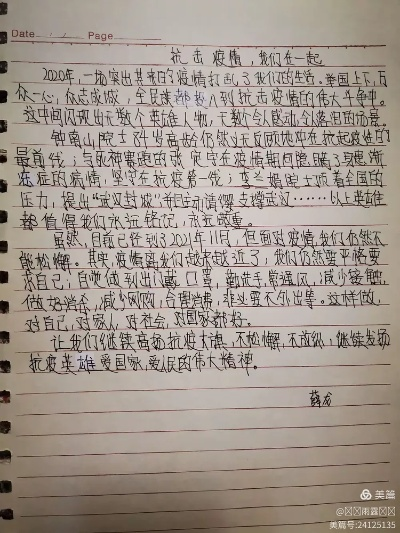 Date
Page
抗击疫情,我们在一起
2020年,一场突出其来的疫情打乱了我们的生活。举国上下,万
众一心,众志成城,全民族都投入到抗击疫情的伟大斗争中。
这中间闪现出无数个英雄人物,无数个令人感动令人落泪的场景。
钟南山院士84岁高龄仍然义无反顾地冲在抗击疫情的
最前线;与死神赛跑的张定宇在疫情期间隐瞒了身患渐
冻症的病情,坚守在抗疫第一线;李兰娟院士顶着全国的
压力,提出"武汉封城"并主动请缨支撑武汉……以上英雄
都值得我们永远铭记,永远感恩。
虽然,目前已经到了2021年11月,但面对疫情,我们仍然不
能松懈。其实,疫情离我们越来越近了,我们仍然要严格要
求自己:自觉做到出门戴口罩,勤洗手,常通风,减少接触,
做好消杀,减少网购,合理消费,非必要不外出等。这样做,
对自己,对家人,对社会,对国家都好。
让我们继续高扬抗疫大旗,不松懈,不放纵;继续发扬
抗疫英雄爱国家,爱人民的伟大精神。
薛龙
美篇
@雨露
美篇号:24125135